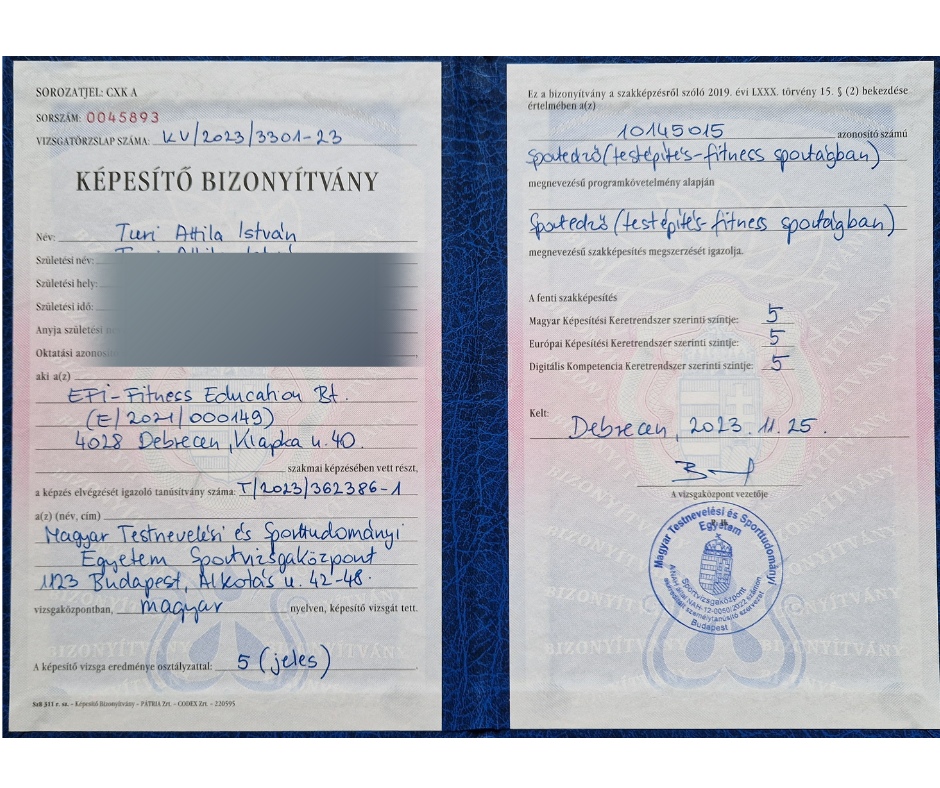 SOROZATJEL: CXK A
SORSZÁM: 0045893
VIZSGATÖRZSLAP SZÁMA: KV/2023/3301-23
KÉPESÍTŐ BIZONYÍTVÁNY
Név: Turi Attila István
Születési név:
Születési hely:
Születési idő:
Anyja születési
Oktatási
aki a(z)
EFI-Fitness Education Bt.
(E/2021/000149)
4028 Debrecen, Klapka u. 40.
szakmai képzésében vett részt,
a képzés elvégzését igazoló tanúsítvány száma: T/2023/362386-1
a(z) (név, cím)
Magyar Testnevelési és Sporttudományi
Egyetem Sportvizsgaközpont
1123 Budapest, Alkotás u. 42-48.
vizsgaközpontban, magyar nyelven, képesítő vizsgát tett.
A képesítő vizsga eredménye osztályzattal: 5 (jeles)
SzB 311 r. sz. – Képesítő Bizonyítvány – PÁTRIA Zrt. – CODEX Zrt. – 220595
Ez a bizonyítvány a szakképzésről szóló 2019. évi LXXX. törvény 15. § (2) bekezdése
értelmében a(z)
10145015 azonosító számú
Sportedző (testépítés-fitness sportágban)
megnevezésű programkövetelmény alapján
Sportedző (testépítés-fitness sportágban)
megnevezésű szakképesítés megszerzését igazolja.
A fenti szakképesítés
Magyar Képesítési Keretrendszer szerinti szintje: 5
Európai Képesítési Keretrendszer szerinti szintje: 5
Digitális Kompetencia Keretrendszer szerinti szintje: 5
Kelt:
Debrecen, 2023. 11. 25.
A vizsgaközpont vezetője
P. H.
Magyar Testnevelési és Sporttudományi
Egyetem
Sportvizsgaközpont
A NAH által NAH-12-0050/2022 számon
akkreditált személytanúsító szervezet
Budapest
BIZONYÍTVÁNY